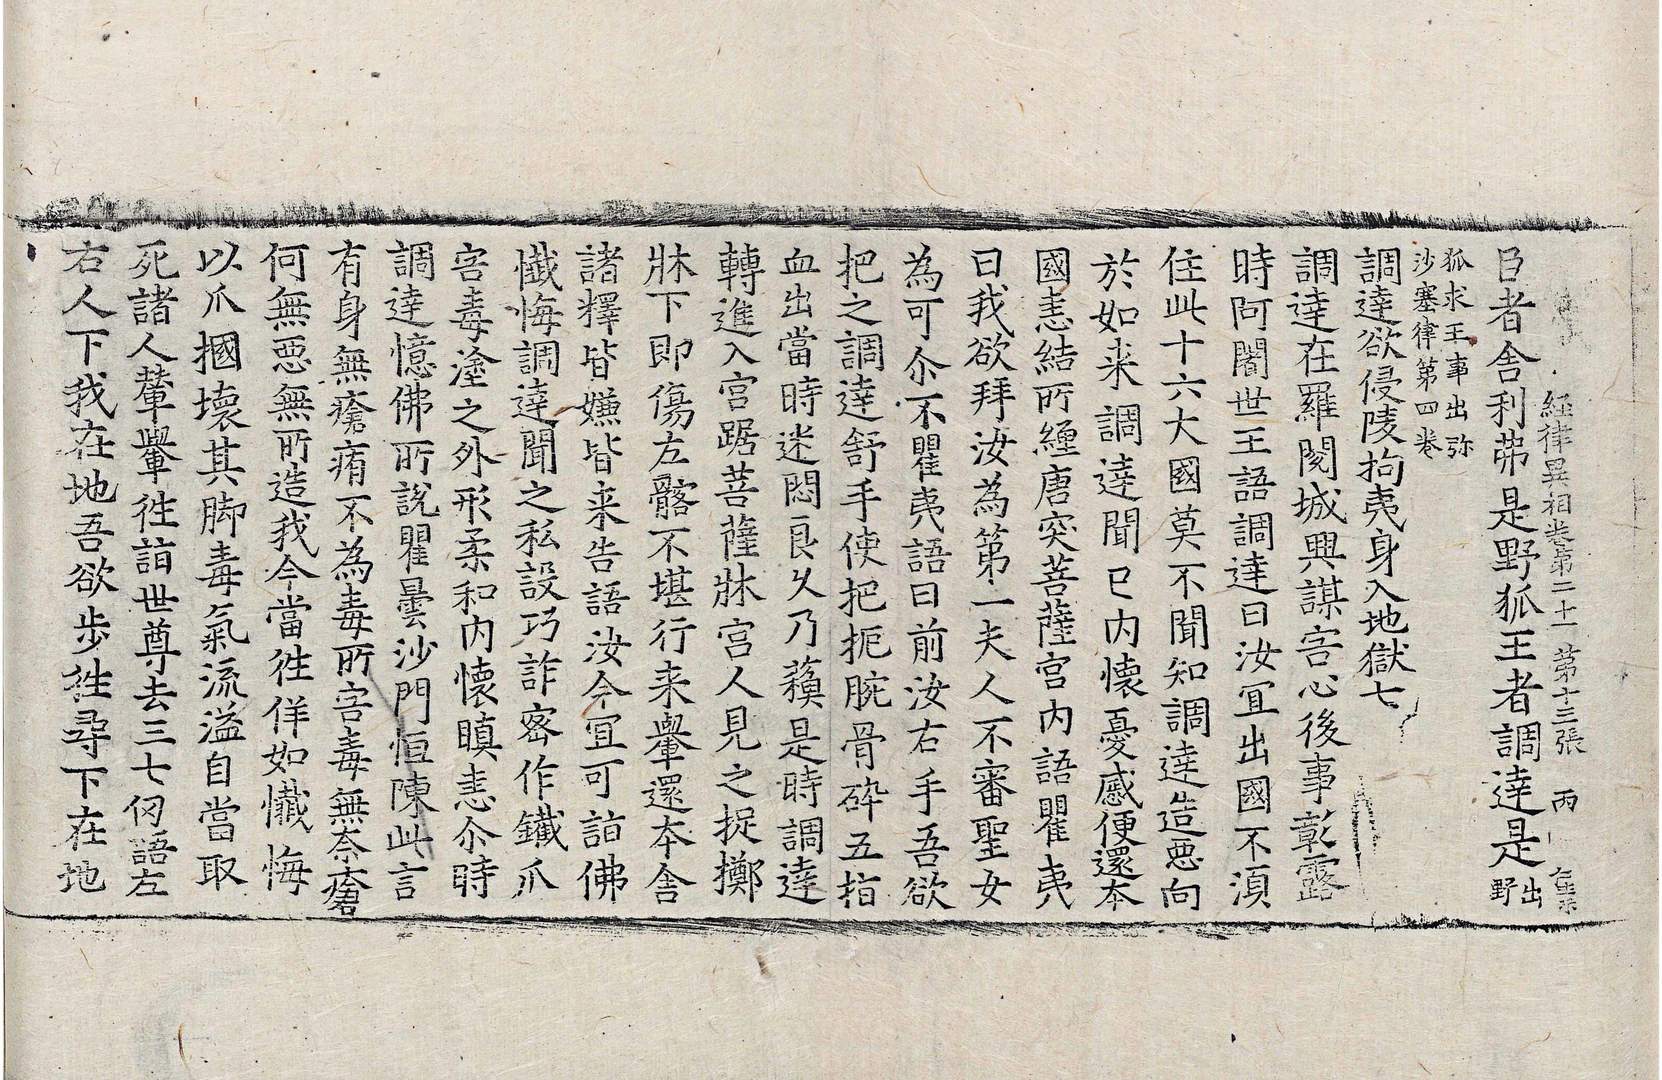 經律異相卷第二十一 第十三張 丙
臣者舍利弗是野狐王者調達是出野
狐求王事出弥
沙塞律第四卷
調達欲侵陵拘夷身入地獄七
調達在羅閱城興謀害心後事彰露
時阿闍世王語調達曰汝宜出國不湏
住此十六大國莫不聞知調達造惡向
於如来調達聞已内懷憂慼便還本
國恚結所纏唐突菩薩宮内語瞿夷
曰我欲拜汝為第一夫人不審聖女
為可尒不瞿夷語曰前汝右手吾欲
把之調達舒手使把扼腕骨碎五指
血出當時迷悶良久乃蘓是時調達
轉進入宮踞菩薩牀宮人見之捉擲
牀下即傷左髂不堪行来轝還本舍
諸釋皆嫌皆来告語汝今宜可詣佛
懺悔調達聞之私設巧詐密作鐵爪
害毒塗之外形柔和内懷瞋恚尒時
調達憶佛所說瞿曇沙門恒陳此言
有身無瘡痏不為毒所害毒無奈瘡
何無惡無所造我今當徃佯如懺悔
以爪摑壞其脚毒氣流溢自當取
死諸人輦轝徃詣世尊去三七仞語左
右人下我在地吾欲步徃尋下在地